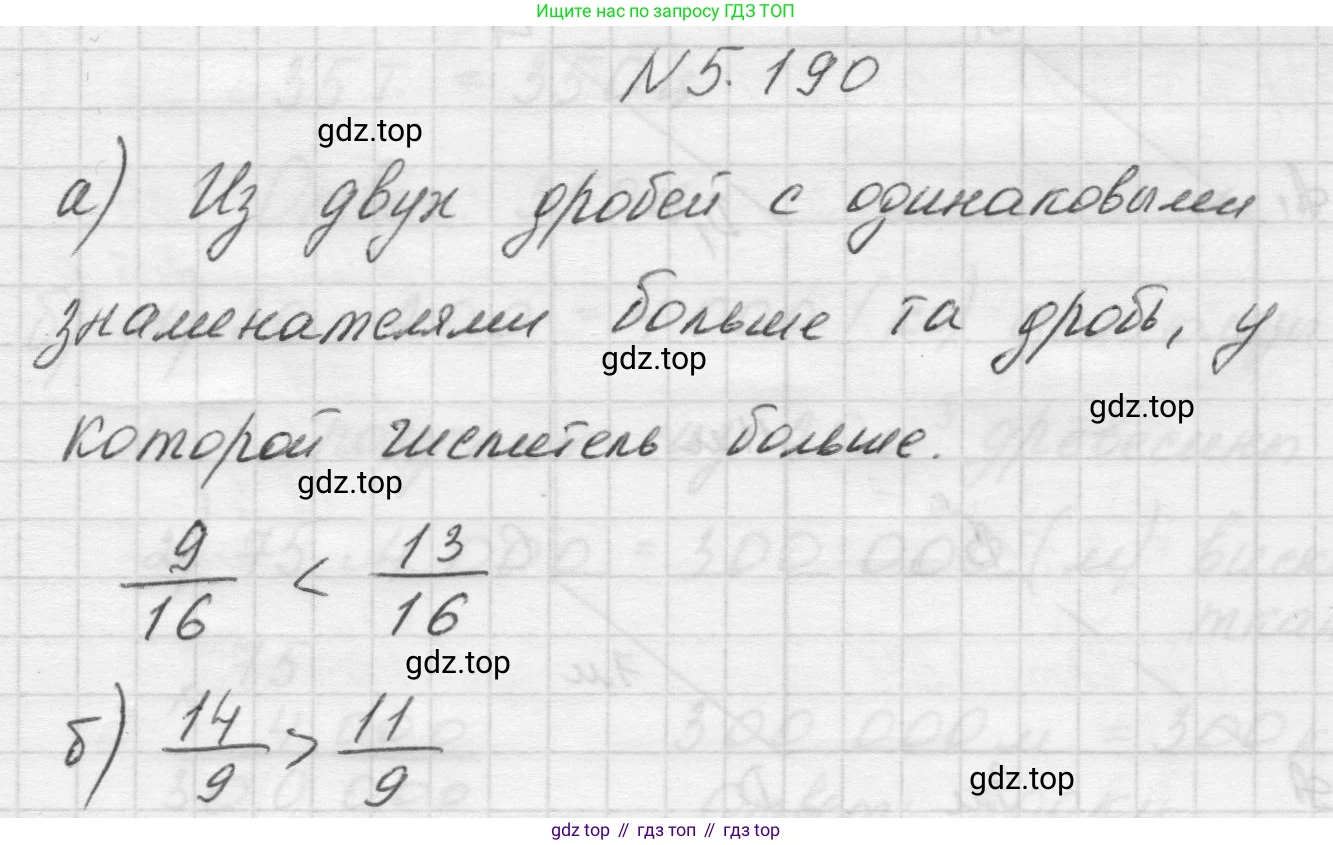 Ищите нас по запросу ГДЗ ТОП
N 5.190
gdz.top
а) Из двух дробей с одинаковыми
знаменателями больше та дробь, у
gdz.top
gdz.top
которой числитель больше.
gdz.top
9/16 < 13/16
gdz.top
б) 14/9 > 11/9
gdz.top
gdz top // гдз топ // гдз top